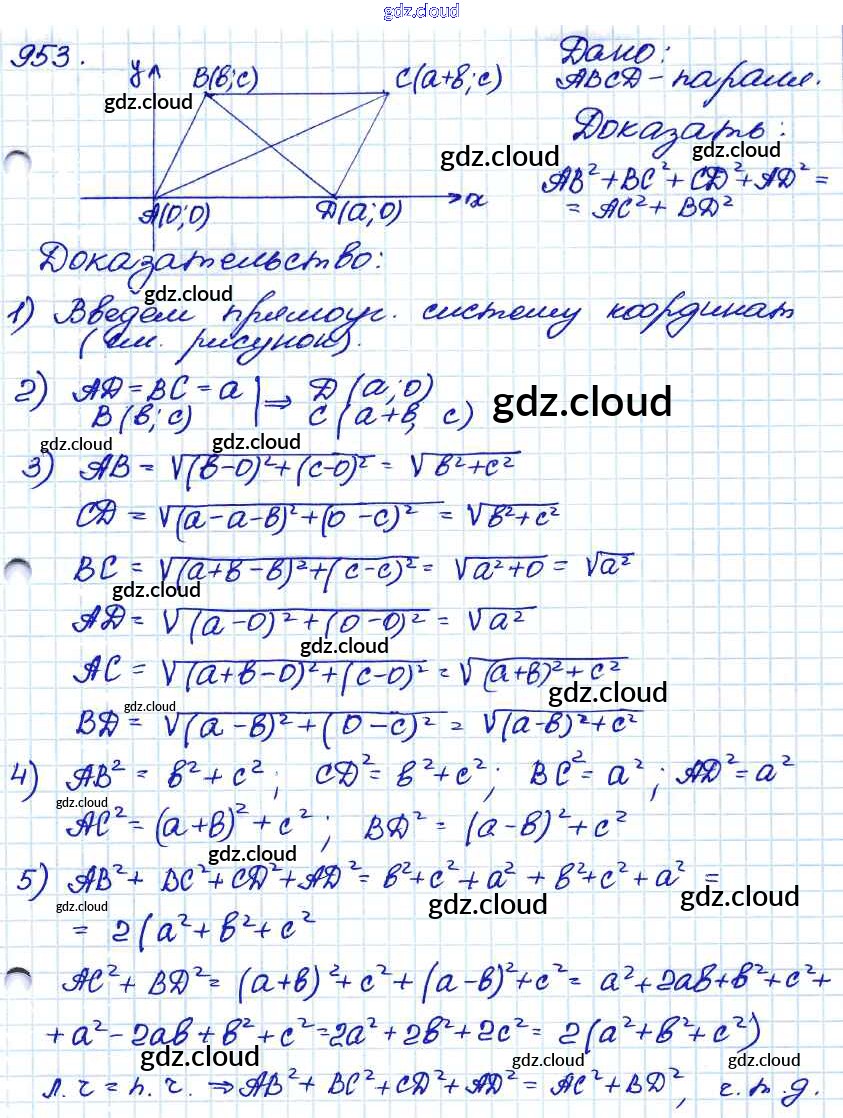 gdz.cloud
gdz.cloud
953.
y
B(в;c)
C(a+в;c)
gdz.cloud
A(0;0)
D(a;0)
x
Дано:
ABCD - паралл.
Доказать:
gdz.cloud
gdz.cloud
AB²+BC²+CD²+AD²=
= AC²+BD²
Доказательство:
gdz.cloud
1) Введём прямоуг. систему координат
(см. рисунок).
2) AD=BC=a | ⇒ D(a;0)
B(в;c) | C(a+в; c)
gdz.cloud
gdz.cloud
gdz.cloud
3) AB = √(в-0)²+(c-0)² = √в²+c²
CD = √(a-a-в)²+(0-c)² = √в²+c²
BC = √(a+в-в)²+(c-c)² = √a²+0 = √a²
gdz.cloud
AD = √(a-0)²+(0-0)² = √a²
gdz.cloud
AC = √(a+в-0)²+(c-0)² = √(a+в)²+c²
gdz.cloud
gdz.cloud
BD = √(a-в)²+(0-c)² = √(a-в)²+c²
4) AB² = в²+c²; CD² = в²+c²; BC² = a²; AD² = a²
gdz.cloud
AC² = (a+в)²+c²; BD² = (a-в)²+c²
gdz.cloud
5) AB²+BC²+CD²+AD² = в²+c²+a²+в²+c²+a² =
gdz.cloud
gdz.cloud
gdz.cloud
= 2(a²+в²+c²
AC²+BD² = (a+в)²+c²+(a-в)²+c² = a²+2aв+в²+c²+
+a²-2aв+в²+c²=2a²+2в²+2c²= 2(a²+в²+c²)
gdz.cloud
gdz.cloud
gdz.cloud
л.ч = п.ч. ⇒ AB²+BC²+CD²+AD² = AC²+BD², ч.т.д.